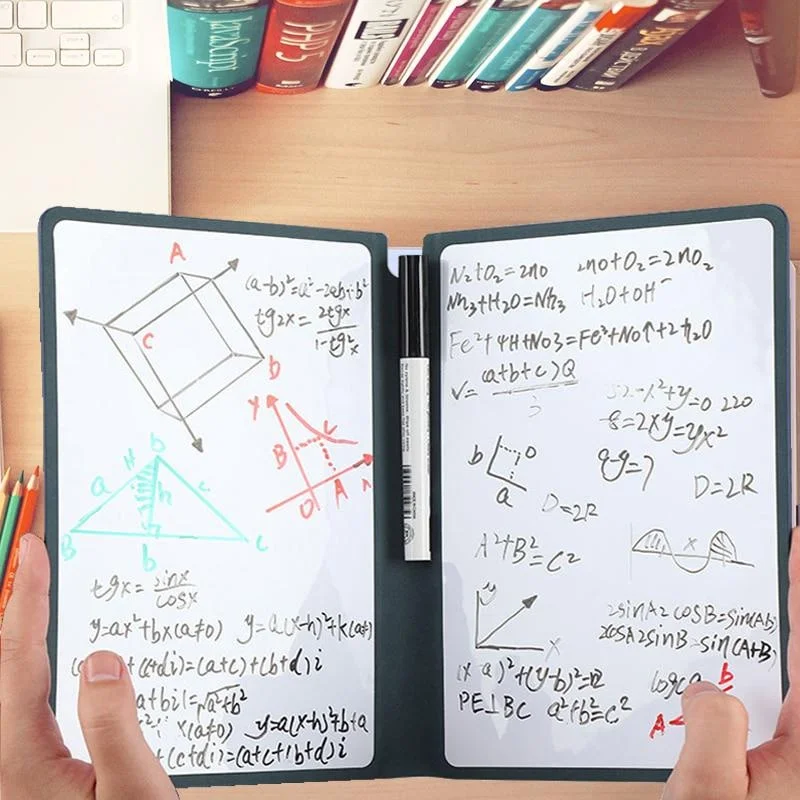 JavaScript
PHP 5
A
C
D
(a-b)²=a²-2ab+b²
tg2x= 2tgx
1-tg²x
Y
B
C
O
A
b
H
a
h
c
B
b
C
tgx= sinx
cosx
y=ax²+bx(a≠0) y=a(x-h)²+k(a≠
+(c+di)=(a+c)+(b+d)i
a+bi|=√a²+b²
x(a≠0) y=a(x-h)²+b+a
+(c+di)=(a+c+(b+d)i
N₂+O₂=2no 2no+O₂=2nO₂
Nh₃+H₂O=Nh₃ H₂O+OH⁻
Fe²+4H+No3=Fe³+No↑+2h₂O
V= (a+b+c)Q
3
52-x²+y=0 220
-8=2xy=yx²
b
O
a
D=2R
D=2R
A²+B²=C²
x
y
X
2sinA2cosB=sin(Ab)
2cosA2sinB=sin(A+B)
(x-a)²+(y-b)²=
PE⊥BC a²+b²=c²
b
A